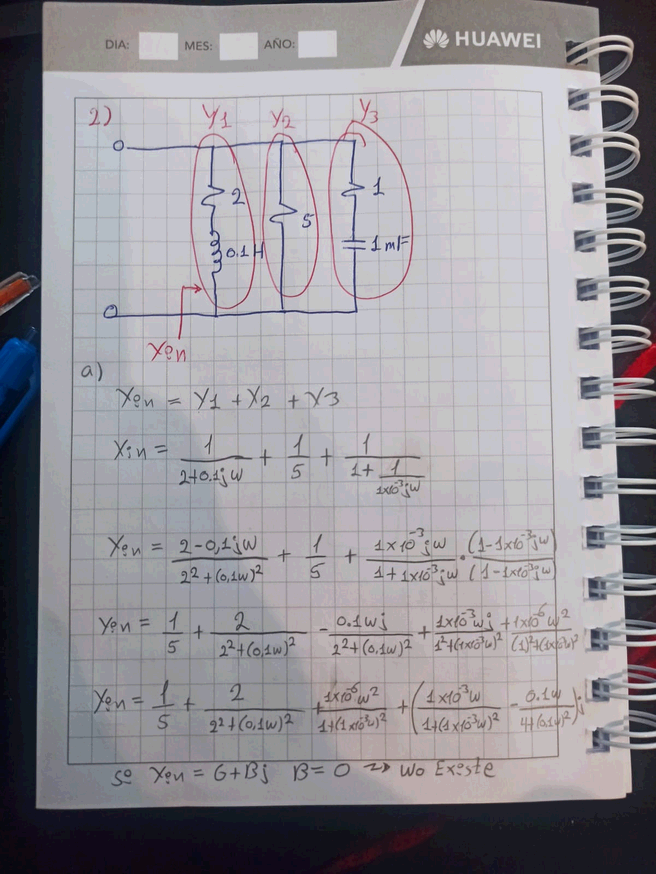 DIA: MES: AÑO: HUAWEI
2) Y1 Y2 Y3
2 5 1
0.1H 1mF
Yin
a)
Yin = Y1 + Y2 + Y3
Yin = 1/(2+0.1jw) + 1/5 + 1/(1+1/(1x10^-3jw))
Yin = (2-0,1jw)/(2^2+(0,1w)^2) + 1/5 + (1x10^-3jw)/(1+1x10^-3jw) · (1-1x10^-3jw)/(1-1x10^-3jw)
Yin = 1/5 + 2/(2^2+(0,1w)^2) - 0.1wj/(2^2+(0,1w)^2) + 1x10^-3wj/(1^2+(1x10^-3w)^2) + 1x10^-6w^2/((1)^2+(1x10^-3w)^2)
Yin = 1/5 + 2/(2^2+(0,1w)^2) + 1x10^-6w^2/(1+(1x10^-3w)^2) + (1x10^-3w/(1+(1x10^-3w)^2) - 0.1w/(4+(0,1w)^2))j
Si Yin = G+Bj B=0 → Wo Existe